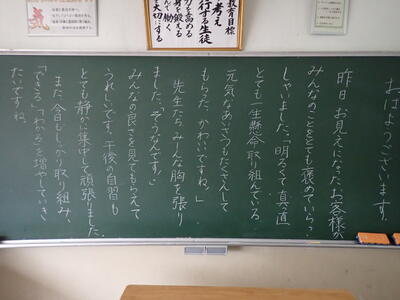 教育目標
考え
行する生徒
力を高める
身を鍛える
んで働く
大切にする
おはようございます。
昨日、お見えになったお客様が
みんなのことをとても褒めていらっ
しゃいました。「明るくて真っ直
とても一生懸命取り組んでいる
元気なあいさつもたくさんして
もらった。かわいいですね。」
先生たちみ～んな胸を張り
ました。「そうなんです！」
みんなの良さを見てもらえて
うれしいです。午後の自習も
とても静かに集中して頑張りました。
また、今日もしっかり取り組み、
「できる」「わかる」を増やしていき
たいですね。